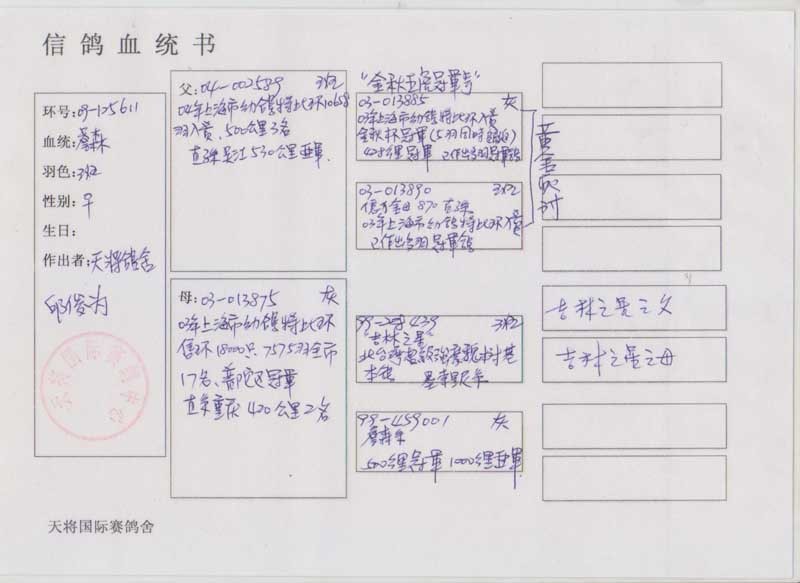 信鸽血统书
环号:09-125611
血统:詹森
羽色:斑
性别:平
生日:
作出者:天将鸽舍
邱俊为
天将国际赛鸽中心
父:04-002589 斑
04年上海市幼鸽特比环10658
羽入赏、500公里3名
直孙吴江530公里亚军.
母:03-013875 灰
03年上海市幼鸽特比环
售环18000只、7575羽全市
17名、普陀区冠军
直子重庆 420公里2名
"金秋五虎冠军号"
03-013885 灰
03年上海市幼鸽特比环入赏
金秋杯冠军(5羽同时
428公里冠军 又作出多羽冠军鸽
03-013890 斑
870 直孙
03年上海市幼鸽特比环入赏
又作出多羽冠军鸽
黄金配对
99- 439 斑
"吉林之星"
本铭
99-459001 灰
詹森
500公里冠军 1000公里亚军
吉林之星之父
吉林之星之母
天将国际赛鸽舍